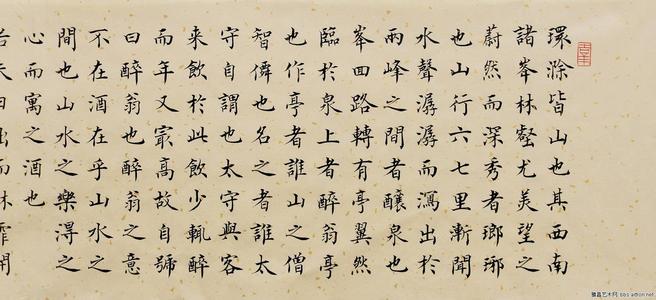 環滁皆山也其西南
諸峯林壑尤美望之
蔚然而深秀者瑯琊
也山行六七里漸聞
水聲潺潺而瀉出於
兩峰之間者釀泉也
峯回路轉有亭翼然
臨於泉上者醉翁亭
也作亭者誰山之僧
智僊也名之者誰太
守自謂也太守與客
来飲於此飲少輒醉
而年又冣高故自號
曰醉翁也醉翁之意
不在酒在乎山水之
間也山水之樂得之
心而寓之酒也
若夫日出而林霏開
雅昌艺术网 bbs.artron.net